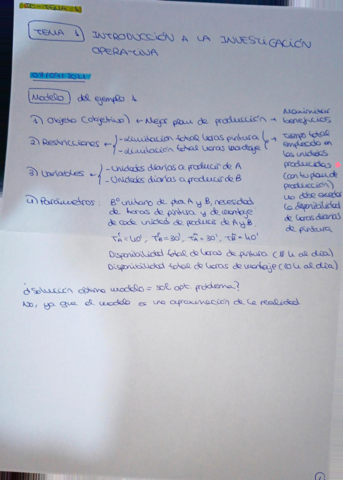 TEMA 1 INTRODUCCIÓN A LA INVESTIGACIÓN
OPERATIVA
Modelo del ejemplo 1
1) Objeto (objetivo) ← Mejor plan de producción → Maximizar
beneficios
2) Restricciones ← - limitación total horas pintura
- limitación total horas montaje
→ Tiempo total
empleado en
las unidades
producidas
(con tu plan de
producción)
no debe exceder
la disponibilidad
de horas diarias
de pintura
3) Variables ← - Unidades diarias a producir de A
- Unidades diarias a producir de B
4) Parámetros : Bº unitario de pto. A y B, necesidad
de horas de pintura y de montaje
de cada unidad de producto de A y B
Disponibilidad total de horas de pintura
Disponibilidad total de horas de montaje (10 h al día)
¿Solución óptima modelo = sol. opt. problema?
No, ya que el modelo es una aproximación de la realidad